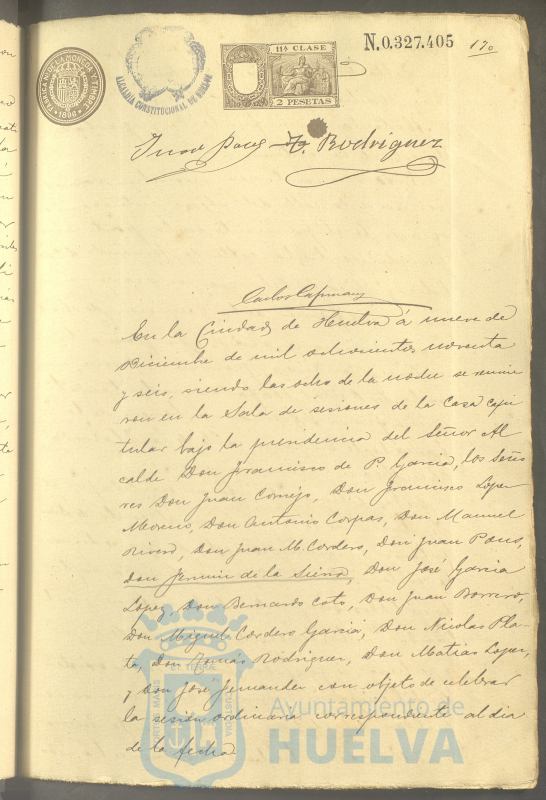 FABRICA N. DE LA MONEDA Y TIMBRE
1896
ALCALDIA CONSTITUCIONAL DE HUELVA
11ª CLASE
2 PESETAS
N.0.327.405
170
Juan Pons
Rodriguez
Carlos Capmany
En la Ciudad de Huelva á nueve de
Diciembre de mil ochocientos noventa
y seis, siendo las ocho de la noche se reunie
ron en la Sala de sesiones de la Casa capi
tular bajo la presidencia del Señor Al
calde Don Francisco de P. Garcia, los Seño
res Don Juan Cornejo, Don Francisco Lopez
Moreno, Don Antonio Corpas, Don Manuel
Rivero, Don Juan M. Cordero, Don Juan Pons,
Don Fermin de la Sierra, Don José Garcia
Lopez, Don Bernardo Coto, Don Juan Borrero,
Don Miguel Cordero Garcia, Don Nicolas Pla-
ta, Don Tomás Rodriguez, Don Matias Lopez,
y Don José Fernandez con objeto de celebrar
la sesion ordinaria correspondiente al dia
de la fecha
PORTUS MARIS ET TERRAE CUSTODIA
Ayuntamiento de
HUELVA